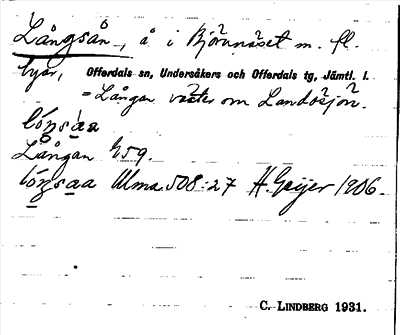 Långsån, å i Björnnäset m. fl.
byar, Offerdals sn, Undersåkers och Offerdals tg, Jämtl. l.
= Långan väster om Landösjön.
lóŋsaa
Långan G59.
lóŋsaa Ulma 508:27 H. Geijer 1906.
C. LINDBERG 1931.